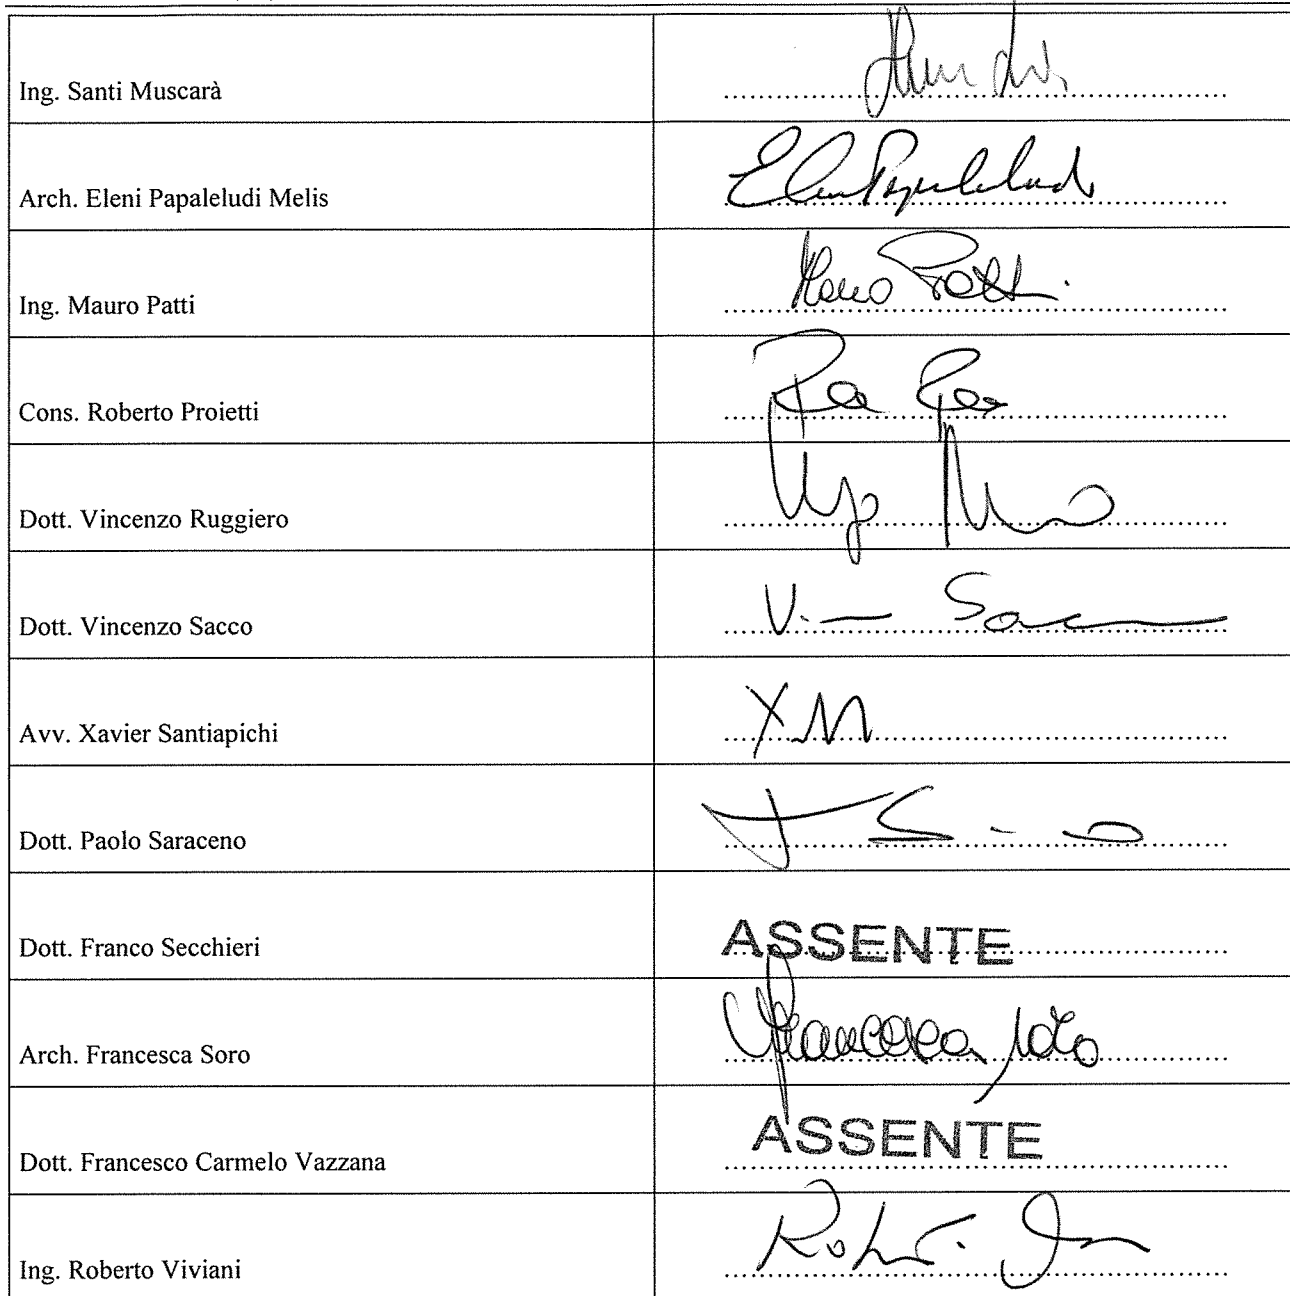 Ing. Santi Muscarà
Arch. Eleni Papaleludi Melis
Elen Papaleludi
Ing. Mauro Patti
Mauro Patti
Cons. Roberto Proietti
Dott. Vincenzo Ruggiero
Dott. Vincenzo Sacco
Avv. Xavier Santiapichi
Dott. Paolo Saraceno
Dott. Franco Secchieri
ASSENTE
Arch. Francesca Soro
Francesca Soro
Dott. Francesco Carmelo Vazzana
ASSENTE
Ing. Roberto Viviani